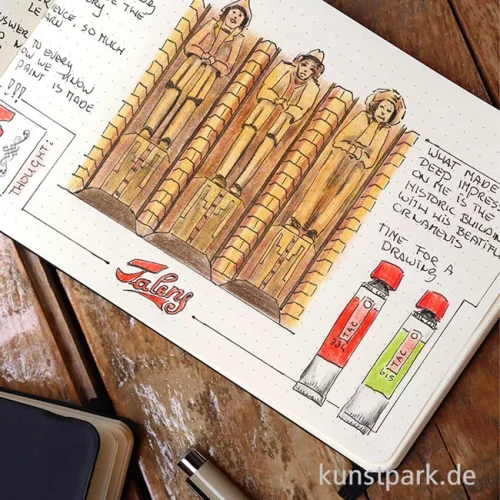 THE
VERY.
LE
ENCE, SO MUCH
TO EVERY
NOW WE KNOW
PAINT IS MADE
!!!
THOUGHT:
Talens
WHAT MADE
DEEP IMPRESS
ON ME IS THE
HISTORIC BUILDIN
WITH HIS BEATIFU
ORNAMENTS
TIME FOR A
DRAWING
TAC
TAC
615
kunstpark.de